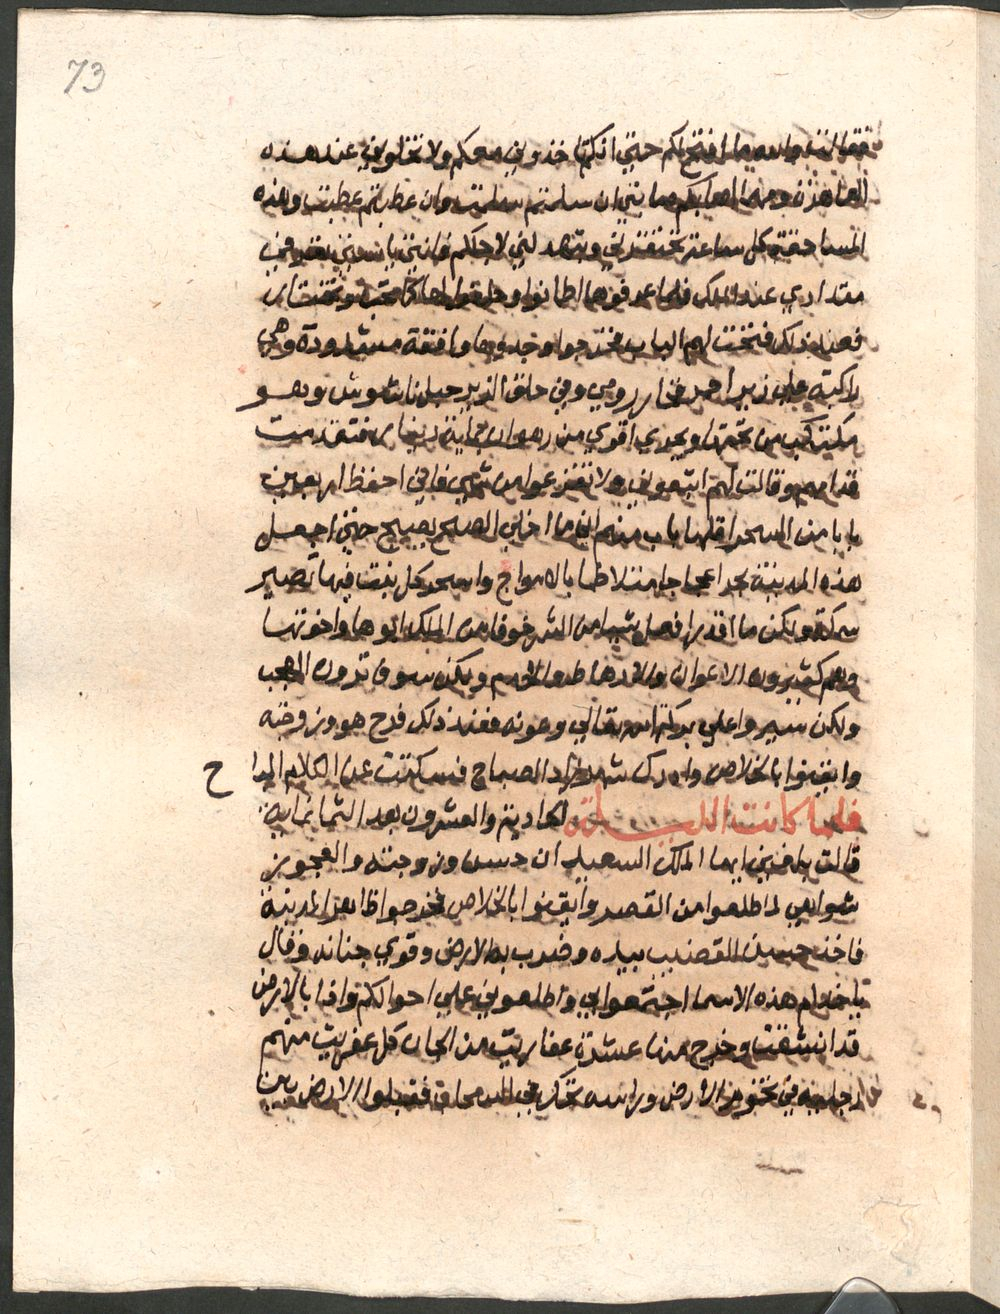 73
فقالت والله ما افتح لكم حتى انكم تاخذوني معكم ولا تخلوني عند هذه
العاهرة ومهما اصابكم صابني ان سلمتم سلمت وان عطبتم عطبت وهذه
المساحقة كل ساعة تحتقرني وتبهدلني لاجلكم فانتي يا بنتي تعرفي
مقداري عند الملك فلما عرفوها اطمانوا وفتحت
فعند ذلك فتحت لهم الباب فخرجوا وجدوها واقفة مشدودة وهي
راكبة علي زير احمر فخار رومي وفي حلق الزير حبل ناشوش وهو
من تحتها ويجري اقوي من فتقدمت
قدامهم وقالت لهم اتبعوني ولا تفزعوا من شي فاني احفظ اربعين
بابا من السحر اقلها باب منهم انا ما اخلي الصبح يصبح حتى اجعل
هذه المدينة بحرا عجاجا متلاطما بالامواج واسحر كل بنت فيها تصير
سمكة ولكن ما اقدر افعل شيا من الشر خوفا من الملك ابوها واخوتها
وهم كثيرون الاعوان ولكن سوف ترون العجب
ولكن سيروا علي بركة الله تعالي وعونه فعند ذلك فرح هو وزوجته
وايقنوا بالخلاص وادرك شهرزاد الصباح فسكتت عن الكلام المبا
ح
فلما كانت الليلة الحادية والعشرون بعد الثمانماية
قالت بلغني ايها الملك السعيد ان حسن وزوجته والعجوز
شواهي لما طلعوا من القصر وايقنوا بالخلاص فخرجوا ظاهر المدينة
فاخذ حسن القضيب بيده وضرب به الارض وقوي جنانه وقال
يا خدام هذه الاسما اجتمعوا لي واطلعوني علي احوالكم واذا بالارض
قد انشقت وخرج منها عشرة عفاريت من الجان كل عفريت منهم
رجليه في تخوم الارض وراسه تحك في السحاب فقبلوا الارض بين